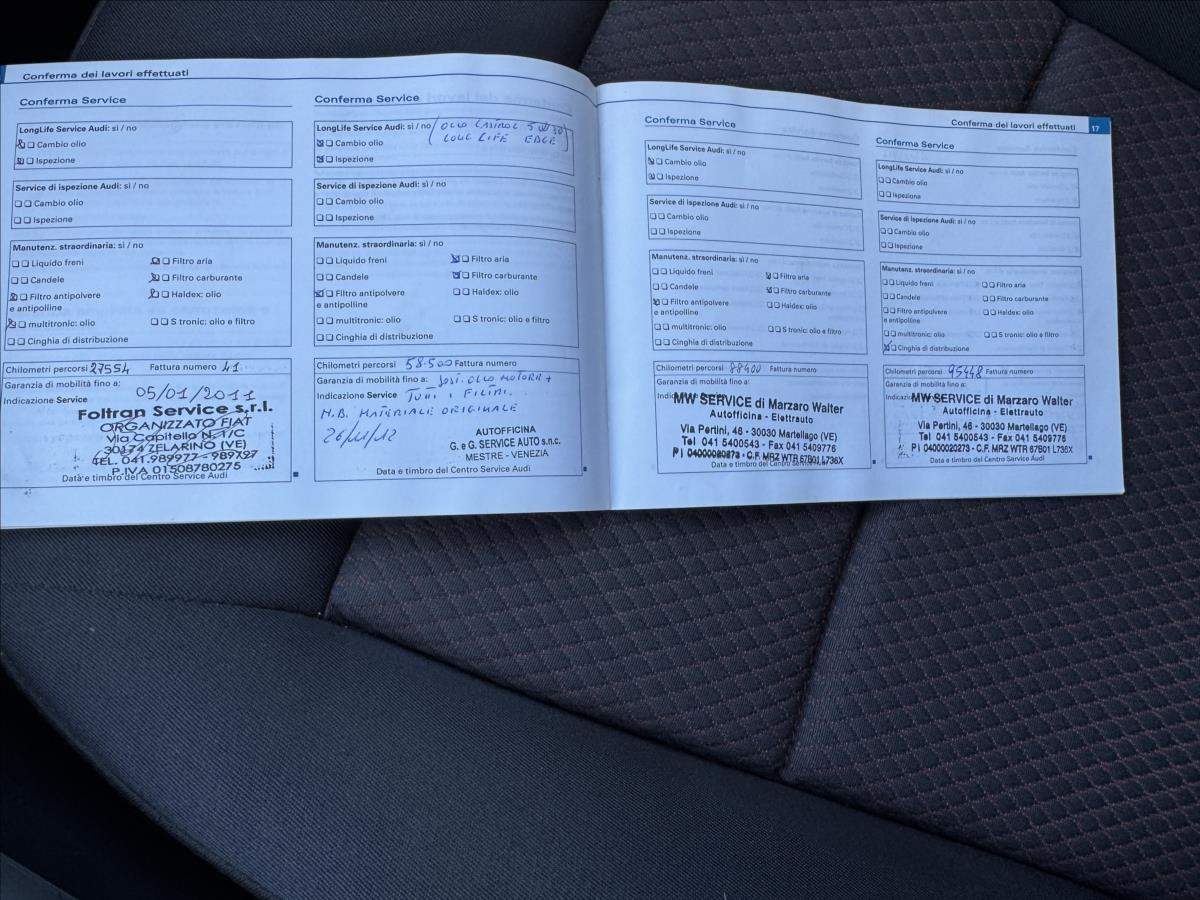 Conferma dei lavori effettuati
Conferma Service
LongLife Service Audi: sì / no
Cambio olio
Ispezione
Service di ispezione Audi: sì / no
Cambio olio
Ispezione
Manutenz. straordinaria: sì / no
Liquido freni
Filtro aria
Candele
Filtro carburante
Filtro antipolvere
e antipolline
Haldex: olio
multitronic: olio
S tronic: olio e filtro
Cinghia di distribuzione
Chilometri percorsi 27554 Fattura numero 41
Garanzia di mobilità fino a:
Indicazione Service
05/01/2011
Foltran Service s.r.l.
ORGANIZZATO FIAT
Via Capitello N. 1/C
30174 ZELARINO (VE)
TEL. 041.989977 - 989727
P.IVA 01508780275
Data e timbro del Centro Service Audi
Conferma Service
LongLife Service Audi: sì / no (OLIO CASTROL 5W30
Cambio olio LONG LIFE EDGE)
Ispezione
Service di ispezione Audi: sì / no
Cambio olio
Ispezione
Manutenz. straordinaria: sì / no
Liquido freni
Filtro aria
Candele
Filtro carburante
Filtro antipolvere
e antipolline
Haldex: olio
multitronic: olio
S tronic: olio e filtro
Cinghia di distribuzione
Chilometri percorsi 58.500 Fattura numero
Garanzia di mobilità fino a: SOST. OLIO MOTORE +
Indicazione Service TUTTI I FILTRI.
N.B. MATERIALE ORIGINALE
26/11/12
AUTOFFICINA
G. e G. SERVICE AUTO s.n.c.
MESTRE - VENEZIA
Data e timbro del Centro Service Audi
Conferma dei lavori effettuati 17
Conferma Service
LongLife Service Audi: sì / no
Cambio olio
Ispezione
Service di ispezione Audi: sì / no
Cambio olio
Ispezione
Manutenz. straordinaria: sì / no
Liquido freni
Filtro aria
Candele
Filtro carburante
Filtro antipolvere
e antipolline
Haldex: olio
multitronic: olio
S tronic: olio e filtro
Cinghia di distribuzione
Chilometri percorsi 88400 Fattura numero
Garanzia di mobilità fino a:
MW SERVICE di Marzaro Walter
Autofficina - Elettrauto
Via Pertini, 46 - 30030 Martellago (VE)
Tel 041 5400543 - Fax 041 5409776
P.I 04000020273 - C.F. MRZ WTR 67B01 L736X
Data e timbro del Centro Service Audi
Conferma Service
LongLife Service Audi: sì / no
Cambio olio
Ispezione
Service di ispezione Audi: sì / no
Cambio olio
Ispezione
Manutenz. straordinaria: sì / no
Liquido freni
Filtro aria
Candele
Filtro carburante
Filtro antipolvere
e antipolline
Haldex: olio
multitronic: olio
S tronic: olio e filtro
Cinghia di distribuzione
Chilometri percorsi 95448 Fattura numero
Garanzia di mobilità fino a:
MW SERVICE di Marzaro Walter
Autofficina - Elettrauto
Via Pertini, 46 - 30030 Martellago (VE)
Tel 041 5400543 - Fax 041 5409776
P.I 04000020273 - C.F. MRZ WTR 67B01 L736X
Data e timbro del Centro Service Audi